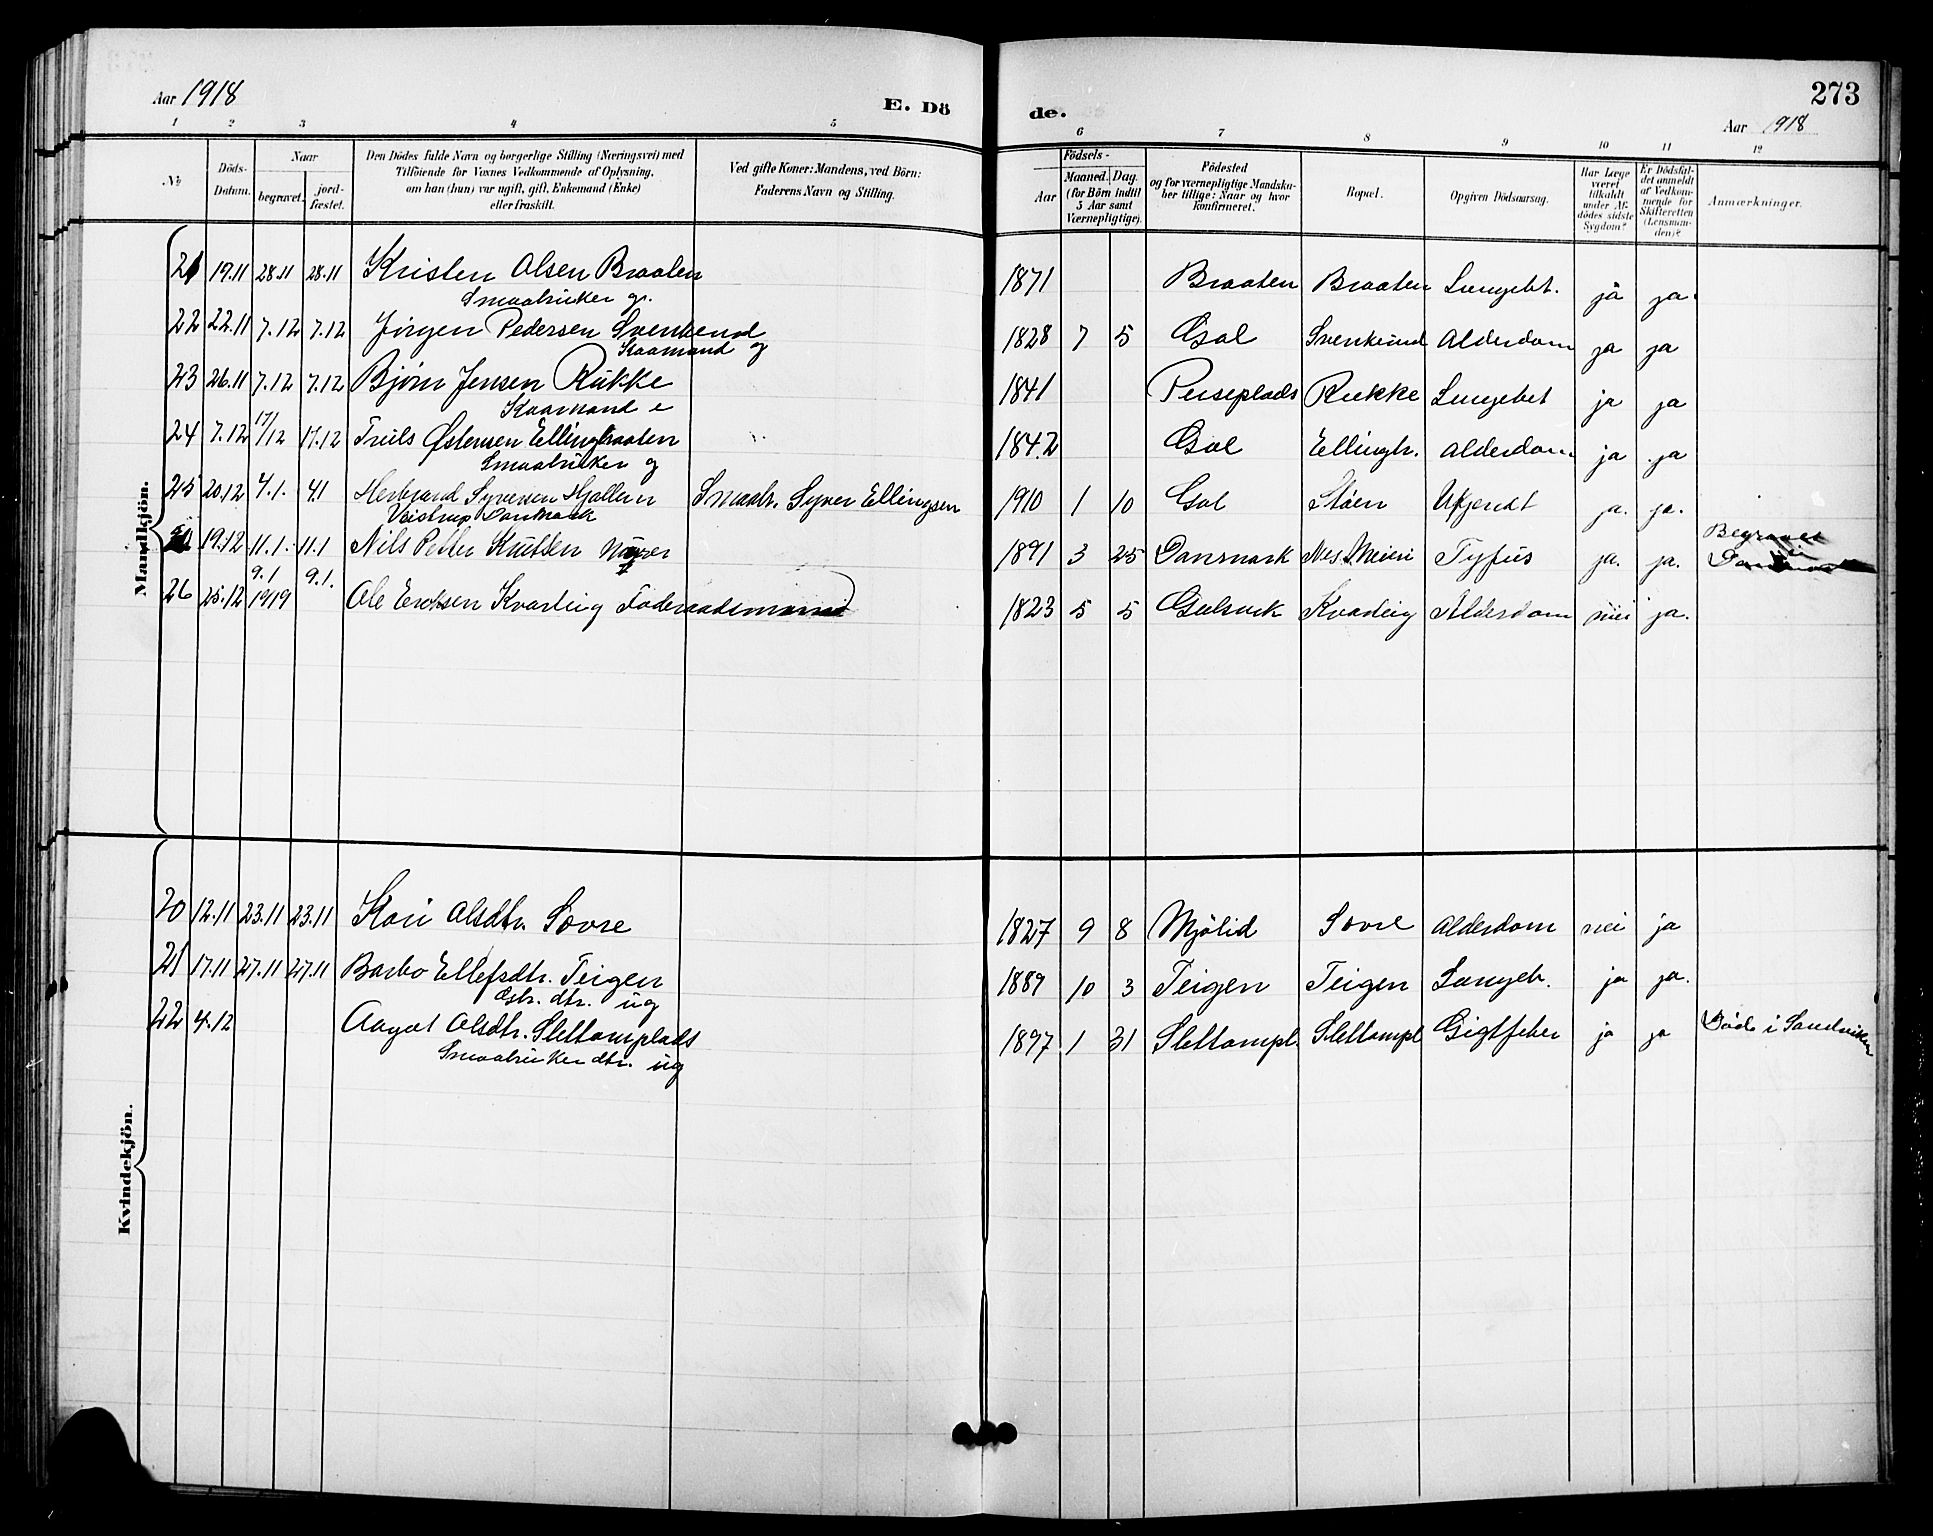 Aar 1918
E. Dö
de.
273
Aar 1918
1 2 3 4 5 6 7 8 9 10 11 12
No
Döds-Datum.
Naar
begravet.
jord-fæstet.
Den Dödes fulde Navn og borgerlige Stilling (Næringsvei) med
Tilföiende for Voxnes Vedkommende af Oplysning,
om han (hun) var ugift, gift, Enkemand (Enke)
eller fraskilt.
Ved gifte Koner: Mandens, ved Börn:
Faderens Navn og Stilling.
Födsels-
Aar
Maaned. Dag.
(for Börn indtil
5 Aar samt
Værnepligtige).
Födested
og for værnepligtige Mandska-
ber tillige: Naar og hvor
konfirmeret.
Bopæl.
Opgiven Dödsaarsag.
Har Læge
været
tilkaldt
under Af-
dödes sidste
Sygdom?
Er Dödsfal-
det anmeldt
af Vedkom-
mende for
Skifteretten
(Lensman-
den)?
Anmærkninger.
Mandkjön.
21 19.11 28.11 28.11 Kristen Olsen Braaten 1871 Braaten Braaten Lungebt. ja ja.
Smaabruker g.
22 22.11 7.12 7.12 Jörgen Pedersen Svenkerud 1828 7 5 Gol Svenkerud Alderdom ja ja
Kaarmand g
23 26.11 7.12 7.12 Bjørn Jensen Rukke 1841 Perseplads Rukke Lungebet ja ja
Kaarmand e
24 7.12 17/12 17.12 Truls Østensen Ellingbraaten 1842 Gol Ellingbr. Alderdom ja ja
Smaabruker g
25 20.12 4.1. 4.1 Herbrand Syversen Hjallen Smaabr. Syver Ellingsen 1910 1 10 Gol Støen Ukjendt ja. ja.
Veistrup Danmark
19.12 11.1. 11.1 Nils Peter Knudsen 1891 3 25 Danmark Nes Meieri Tyfus ja. ja. Begravet i
26 25.12 9.1 1919 9.1. Ole Eriksen Kvarteig Föderaadsmand 1823 5 5 Gulsvik Kvarteig Alderdom nei ja.
Kvindekjön.
20 12.11 23.11 23.11 Kari Olsdtr. Sovre 1827 9 8 Mjölid Sovre Alderdom nei ja
21 17.11 27.11 27.11 Barbo Ellefsdtr. Teigen 1889 10 3 Teigen Teigen Lungeb. ja ja.
Gbr. dtr. ug
22 4.12 Aagot Olsdtr. Slettomplads 1897 1 31 Slettompl. Slettompl Gigtfeber ja ja Död i Sandviken
Smaabruker dtr. ug